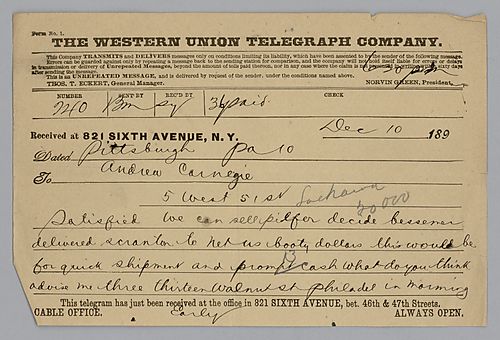 Form No. 1.
THE WESTERN UNION TELEGRAPH COMPANY.
This Company TRANSMITS and DELIVERS messages only on conditions limiting its liability, which have been assented to by the sender of the following message.
Errors can be guarded against only by repeating a message back to the sending station for comparison, and the company will not hold itself liable for errors or delays
in transmission or delivery of Unrepeated Messages, beyond the amount of tolls paid thereon, nor in any case where the claim is not presented in writing within sixty days
after sending the message.
This is an UNREPEATED MESSAGE, and is delivered by request of the sender, under the conditions named above.
THOS. T. ECKERT, General Manager. NORVIN GREEN, President.
NUMBER SENT BY REC'D BY CHECK
240 Bm sy 36 paid
Received at 821 SIXTH AVENUE, N. Y. Dec 10 189
Dated Pittsburgh Pa 10
To Andrew Carnegie
5 West 51 st
30000
Satisfied we can sell pilfer decide bessemer
delivered scranton to net us booty dollars this would be
for quick shipment and prompt cash what do you think
advise me three thirteen Walnut st philadel in morning
Early
This telegram has just been received at the office in 821 SIXTH AVENUE, bet. 46th & 47th Streets.
CABLE OFFICE. ALWAYS OPEN.